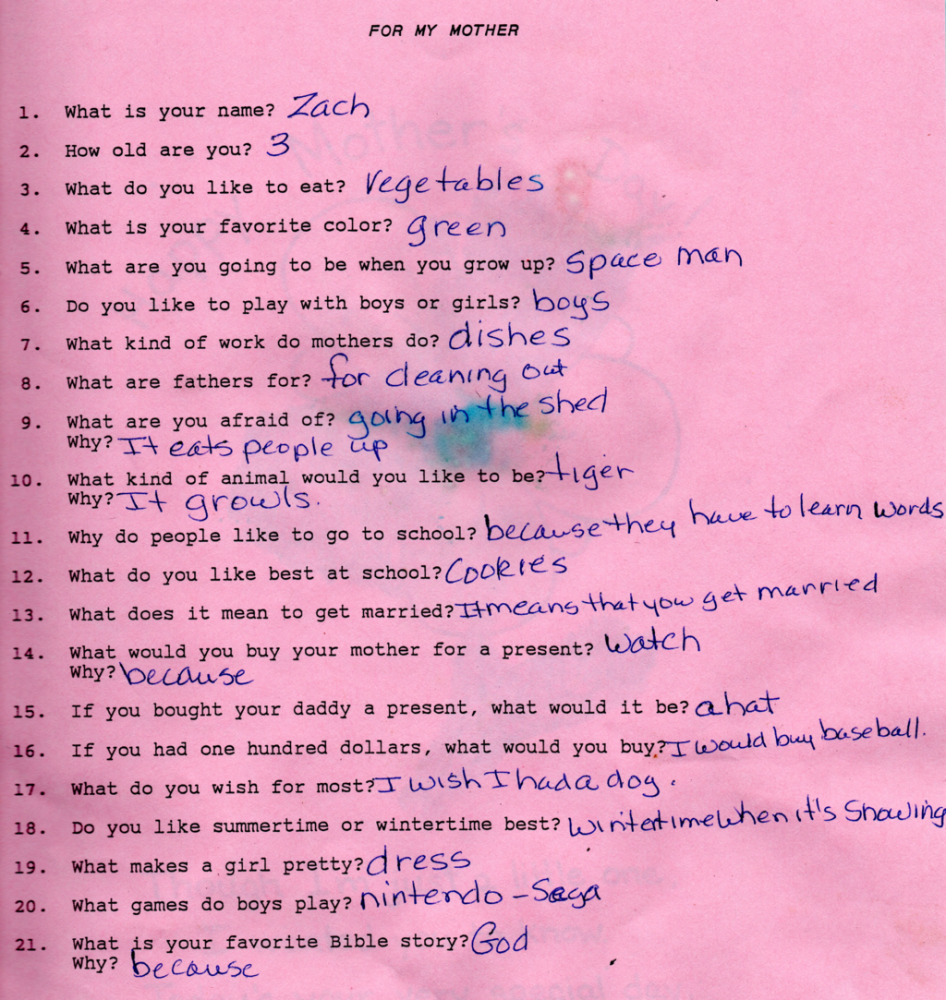 FOR MY MOTHER
1. What is your name? Zach
2. How old are you? 3
3. What do you like to eat? Vegetables
4. What is your favorite color? green
5. What are you going to be when you grow up? Space man
6. Do you like to play with boys or girls? boys
7. What kind of work do mothers do? dishes
8. What are fathers for? for cleaning out
9. What are you afraid of? going in the shed
Why? It eats people up
10. What kind of animal would you like to be? tiger
Why? It growls.
11. Why do people like to go to school? because they have to learn words
12. What do you like best at school? Cookies
13. What does it mean to get married? It means that you get married
14. What would you buy your mother for a present? Watch
Why? because
15. If you bought your daddy a present, what would it be? a hat
16. If you had one hundred dollars, what would you buy? I would buy baseball.
17. What do you wish for most? I wish I had a dog.
18. Do you like summertime or wintertime best? wintertime when it's Snowing
19. What makes a girl pretty? dress
20. What games do boys play? nintendo - Saga
21. What is your favorite Bible story? God
Why? because